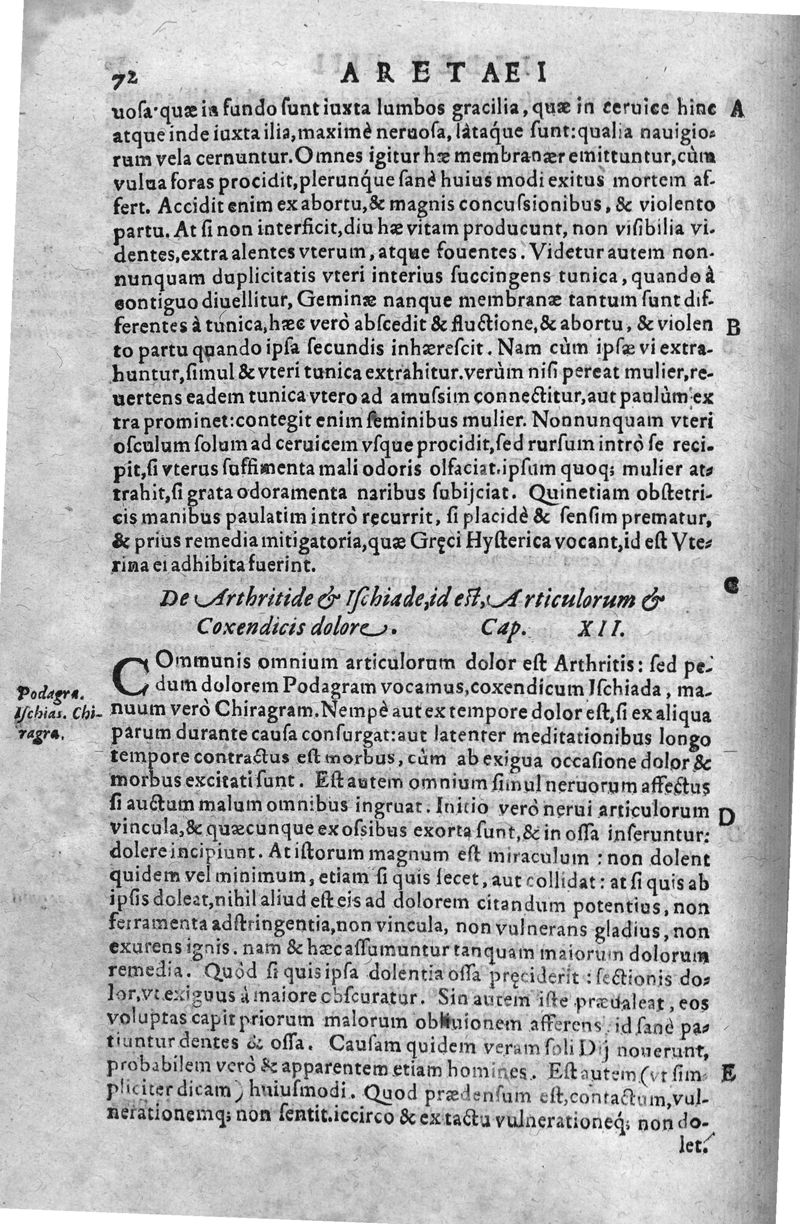 72 ARETAEI
uosa·quæ in fundo sunt iuxta lumbos gracilia, quæ in ceruice hinc A
atque inde iuxta ilia, maximè neruosa, làtaq́ue sunt: qualia nauigio-
rum vela cernuntur. Omnes igitur hæ membranæ remittuntur, cùm
vulua foras procidit, plerunq́ue sanè huius modi exitus mortem af-
fert. Accidit enim ex abortu, & magnis concussionibus, & violento
partu. At si non interficit, diu hæ vitam producunt, non visibilia vi-
dentes, extra alentes vterum, atque fouentes. Videtur autem non-
nunquam duplicitatis vteri interius succingens tunica, quando à
contiguo diuellitur, Geminæ nanque membranæ tantum sunt dif-
ferentes à tunica, hæc verò abscedit & fluctione, & abortu, & violen B
to partu quando ipsa secundis inhærescit. Nam cùm ipsæ vi extra-
huntur, simul & vteri tunica extrahitur. verùm nisi pereat mulier, re-
uertens eadem tunica vtero ad amussim connectitur, aut paulùm ex
tra prominet: contegit enim feminibus mulier. Nonnunquam vteri
osculum solum ad ceruicem vsque procidit, sed rursum intrò se reci-
pit, si vterus suffimenta mali odoris olfaciat. ipsum quoq; mulier at-
trahit, si grata odoramenta naribus subijciat. Quinetiam obstetri-
cis manibus paulatim intrò recurrit, si placidè & sensim prematur,
& prius remedia mitigatoria, quæ Gręci Hysterica vocant, id est Vte-
rina ei adhibita fuerint.
C
De Arthritide & Ischiade, id est, Articulorum &
Coxendicis dolore. Cap. XII.
COmmunis omnium articulorum dolor est Arthritis: sed pe-
dum dolorem Podagram vocamus, coxendicum Ischiada, ma-
nuum verò Chiragram. Nempè aut ex tempore dolor est, si ex aliqua
parum durante causa consurgat: aut latenter meditationibus longo
tempore contractus est morbus, cùm ab exigua occasione dolor &
morbus excitati sunt. Est autem omnium simul neruorum affectus
si auctum malum omnibus ingruat. Initio verò nerui articulorum D
vincula, & quæcunque ex ossibus exorta sunt, & in ossa inseruntur:
dolere incipiunt. At istorum magnum est miraculum: non dolent
quidem vel minimum, etiam si quis secet, aut collidat: at si quis ab
ipsis doleat, nihil aliud est eis ad dolorem citandum potentius, non
ferramenta adstringentia, non vincula, non vulnerans gladius, non
exurens ignis. nam & hæc assumuntur tanquam maiorum dolorum
remedia. Quòd si quis ipsa dolentia ossa pręciderit: sectionis do-
lor, vt exiguus à maiore obscuratur. Sin autem iste præualeat, eos
voluptas capit priorum malorum obliuionem afferens. id sanè pa-
tiuntur dentes & ossa. Causam quidem veram soli Dij nouerunt,
probabilem verò & apparentem etiam homines. Est autem (vt sim E
pliciter dicam) huiusmodi. Quod prædensum est, contactum, vul-
nerationemq; non sentit. iccirco & ex tactu vulnerationeq́; non do-
let.
Podagra.
Ischias. Chi-
ragra.